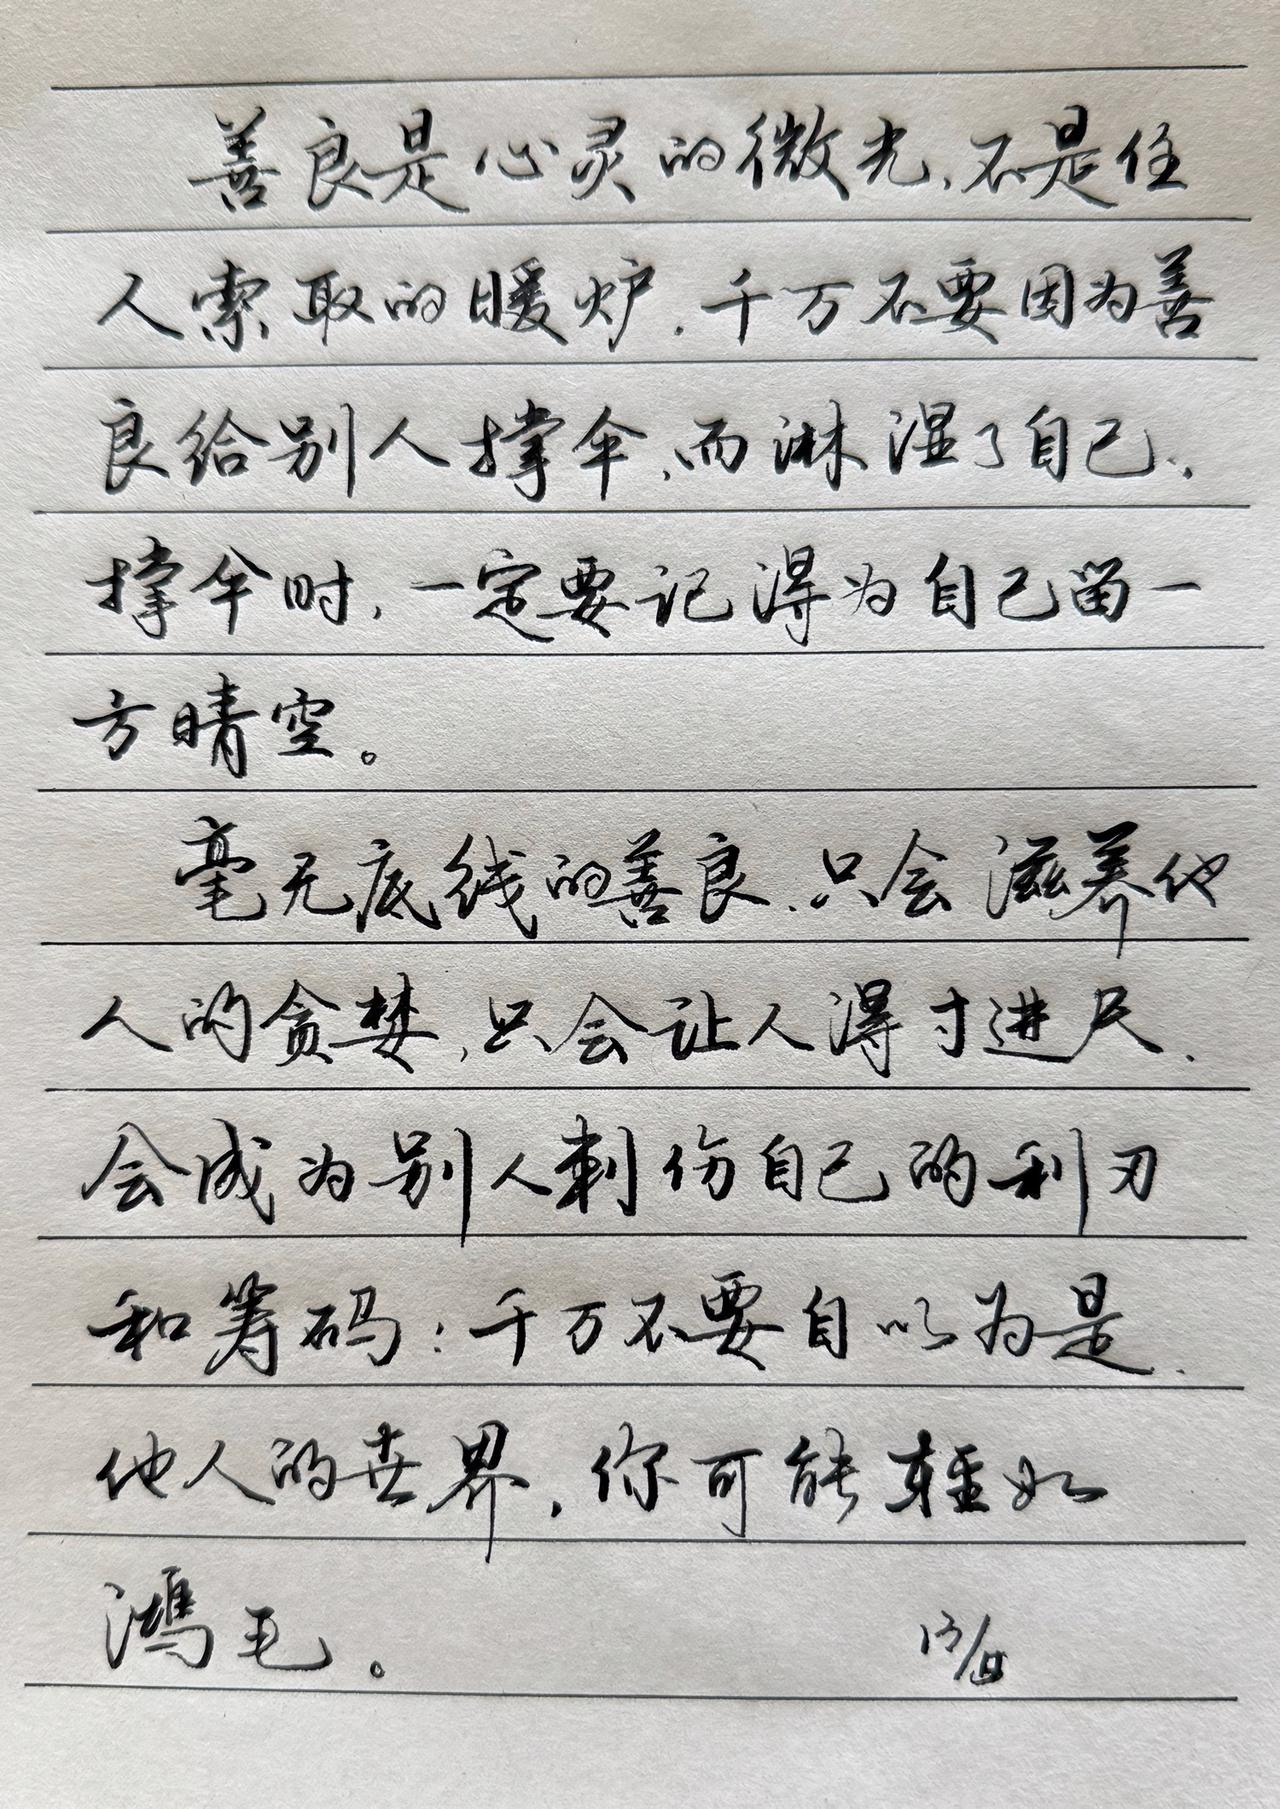 善良是心灵的微光,不是任
人索取的暖炉.千万不要因为善
良给别人撑伞,而淋湿了自己.
撑伞时,一定要记得为自己留一
方晴空。
毫无底线的善良.只会滋养他
人的贪婪,只会让人得寸进尺.
会成为别人刺伤自己的利刃
和筹码:千万不要自以为是.
他人的世界,你可能轻如
鸿毛。